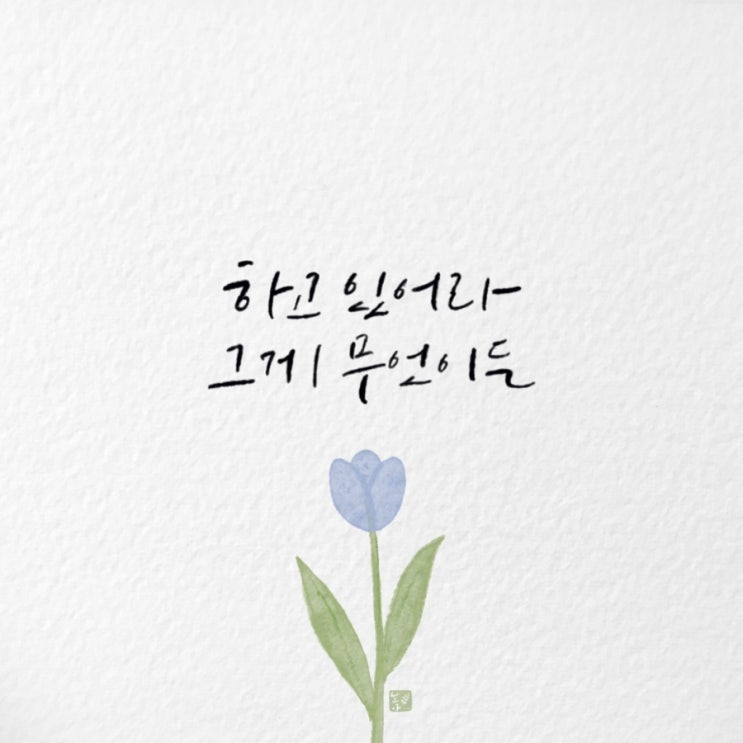 하고 있어라
그게 무언이든